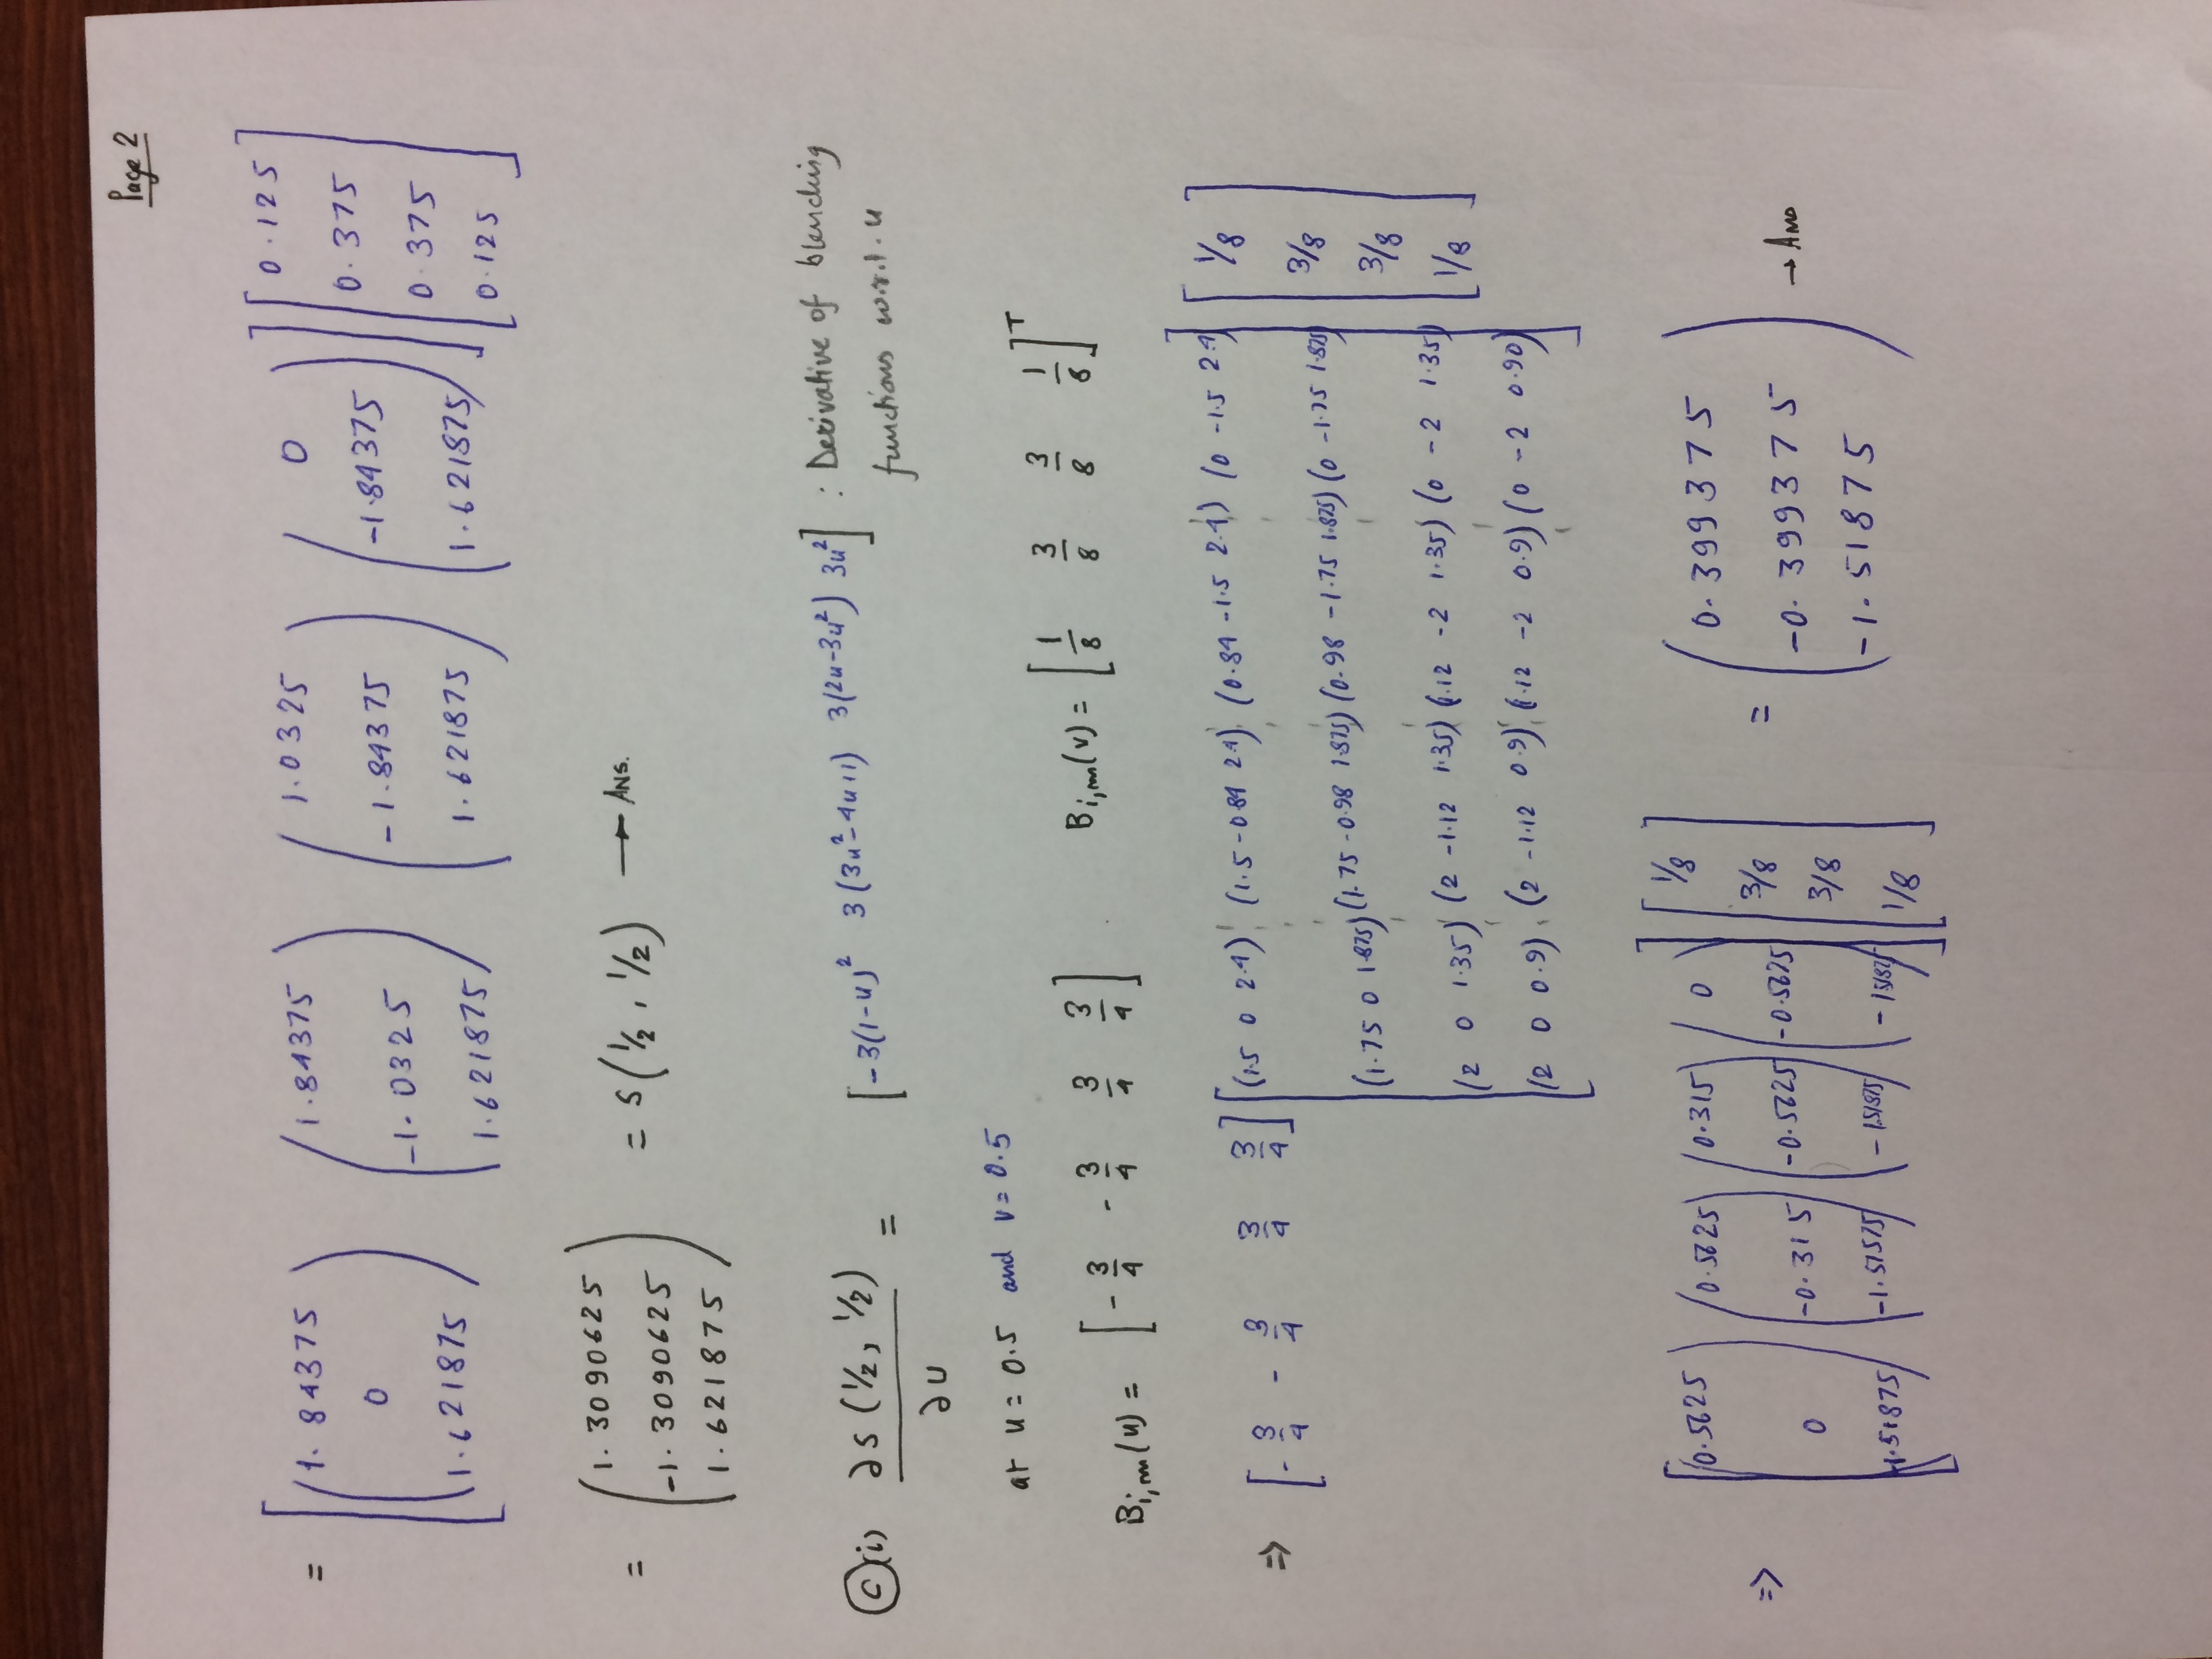 Page 2
= [ (1.84375 0 1.621875) (1.84375 -1.0325 1.621875) (1.0325 -1.84375 1.621875) (0 -1.84375 1.621875) ] [ 0.125 0.375 0.375 0.125 ]
= (1.3090625 -1.3090625 1.621875) = S(1/2, 1/2) → Ans.
(c)(i) ∂S(1/2, 1/2) / ∂u = [-3(1-u)² 3(3u²-4u+1) 3(2u-3u²) 3u²] : Derivative of blending
functions w.r.t. u
at u = 0.5 and v = 0.5
Bi,m(u) = [ -3/4 -3/4 3/4 3/4 ] Bi,m(v) = [ 1/8 3/8 3/8 1/8 ]T
⇒ [ -3/4 -3/4 3/4 3/4 ]
[ (1.5 0 2.4) (1.5 -0.84 2.4) (0.84 -1.5 2.4) (0 -1.5 2.4)
(1.75 0 1.875) (1.75 -0.98 1.875) (0.98 -1.75 1.875) (0 -1.75 1.875)
(2 0 1.35) (2 -1.12 1.35) (1.12 -2 1.35) (0 -2 1.35)
(2 0 0.9) (2 -1.12 0.9) (1.12 -2 0.9) (0 -2 0.90) ] [ 1/8 3/8 3/8 1/8 ]
⇒ [ (0.5625 0 -1.51875) (0.5625 -0.315 -1.51875) (0.315 -0.5625 -1.51875) (0 -0.5625 -1.51875) ] [ 1/8 3/8 3/8 1/8 ] = (0.399375 -0.399375 -1.51875) → Ans